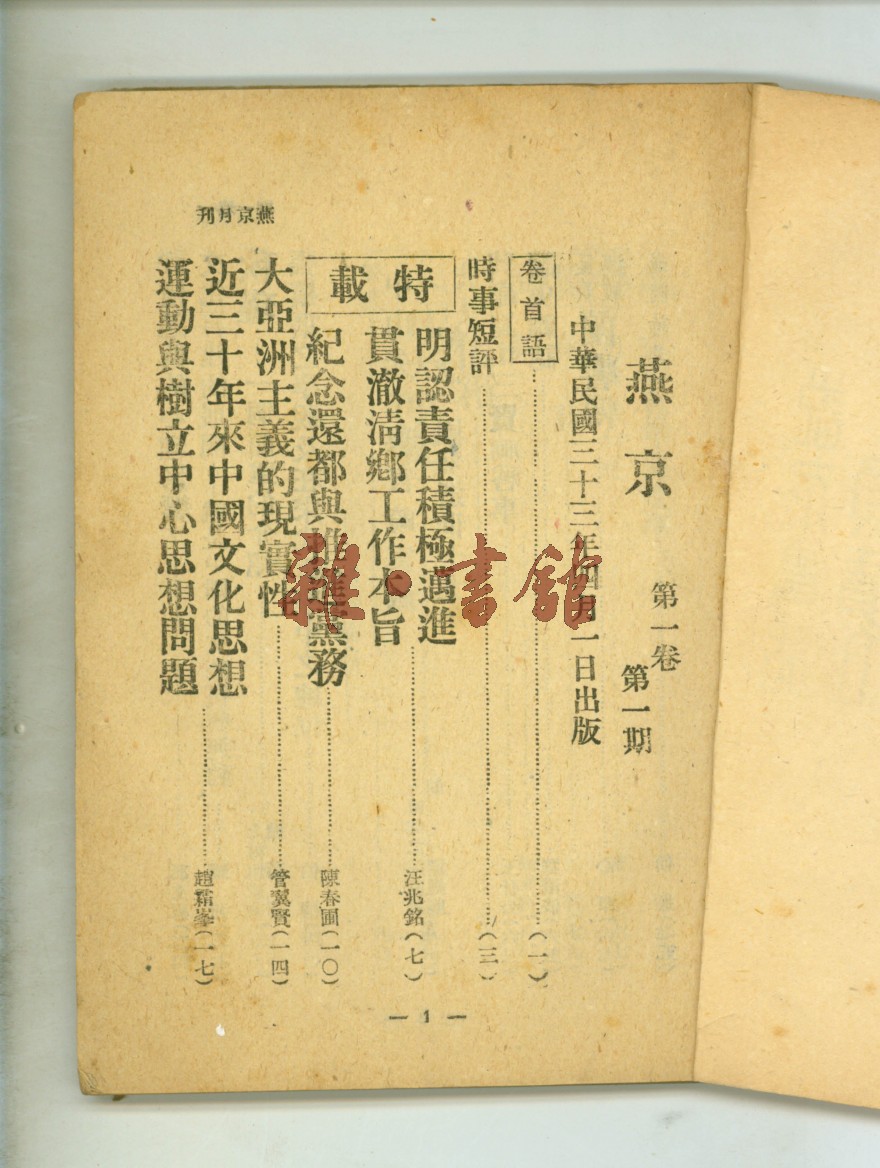 燕京
第一卷
第一期
中華民國三十三年四月一日出版
卷首語……(一)
時事短評……(三)
特載
明認責任積極邁進
貫澈清鄉工作本旨……汪兆銘(七)
紀念還都與推進黨務……陳春圃(一〇)
大亞洲主義的現實性……管翼賢(一四)
近三十年來中國文化思想
運動與樹立中心思想問題……趙霜峯(一七)
燕京月刊
— 1 —
雜·書館